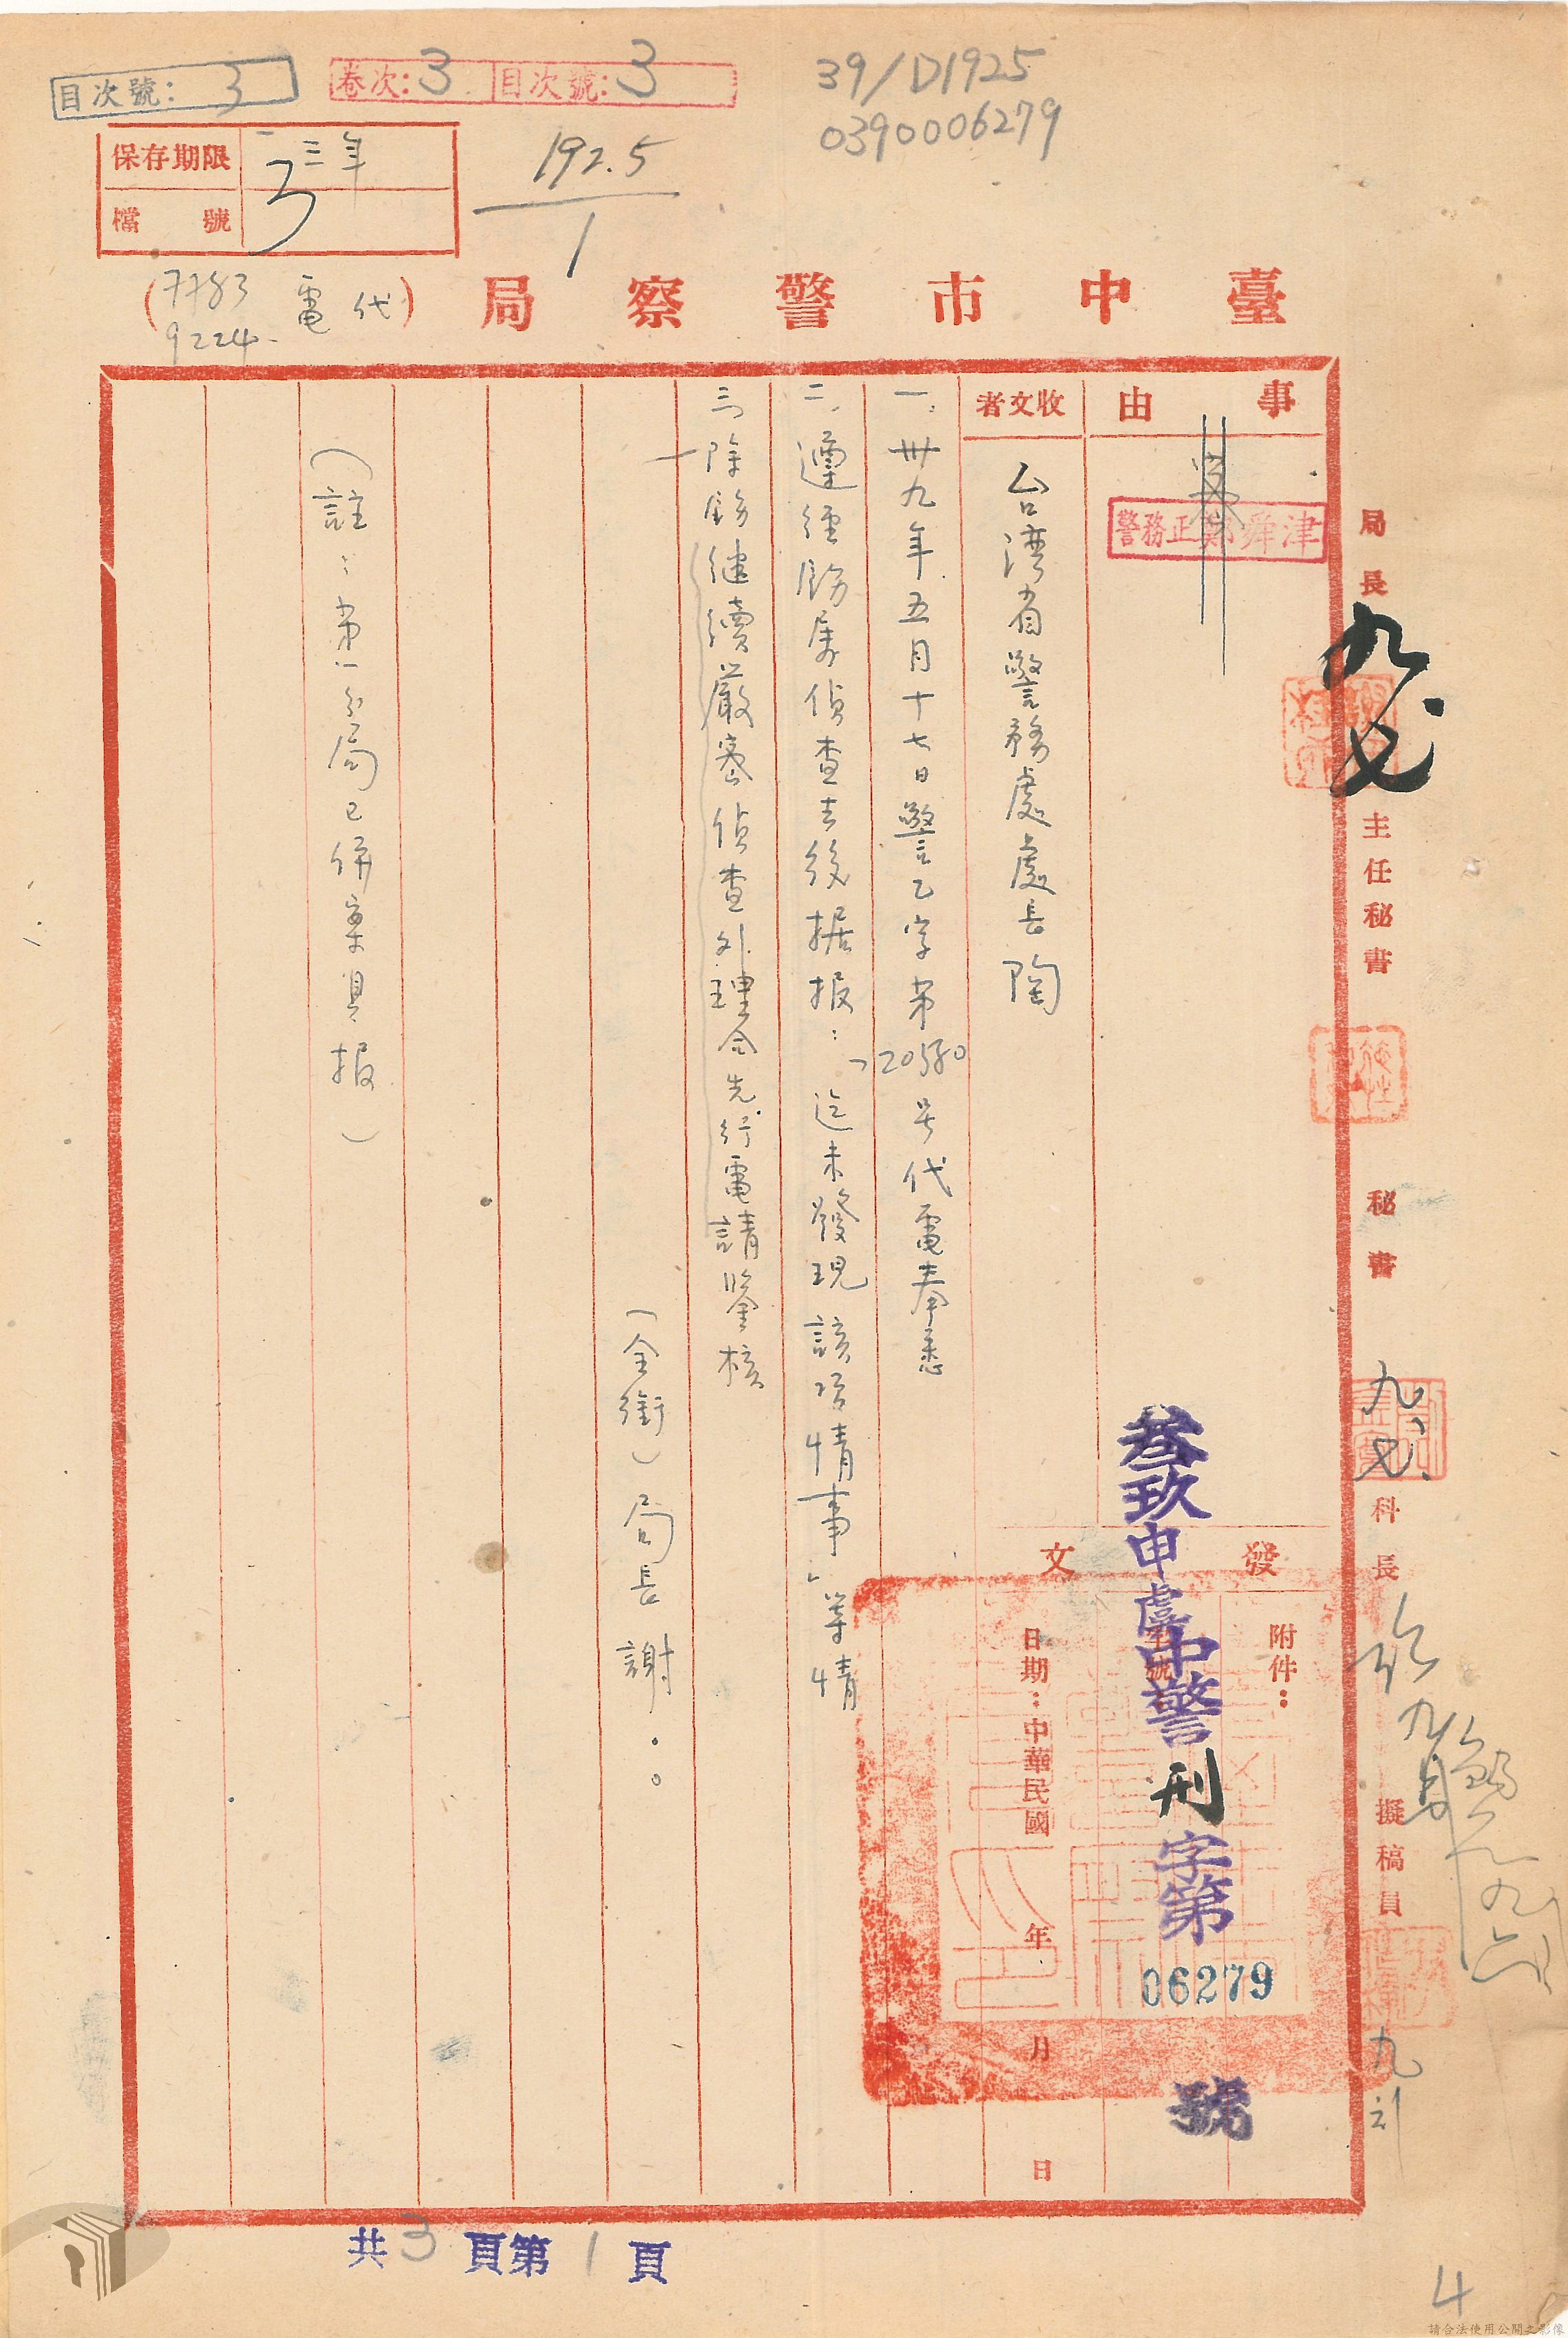 目次號：3
卷次：3 目次號：3
39/D1925
0390006279
保存期限 三年
檔號 3
192.5
1
臺中市警察局（代電
7783
9224
）
事由
警務正鄭舜津
收文者
台湾省警務處處長陶
一、卅九年五月十七日警乙字第20580号代電奉悉
二、遵經飭属偵查去後据报：「迄未發現該項情事」等情
三、除飭继續嚴密偵查外理合先行電請鑒核
（全銜）局長 謝。。
（註：第一分局已併案具报）
發文
附件：
字號
叁玖申虞中警刑字第
06279
號
日期：中華民國 年 月 日
局長
九.七
主任秘書
秘書
九.七.
科長
擬稿員
共3頁第1頁
4
請合法使用公開之影像